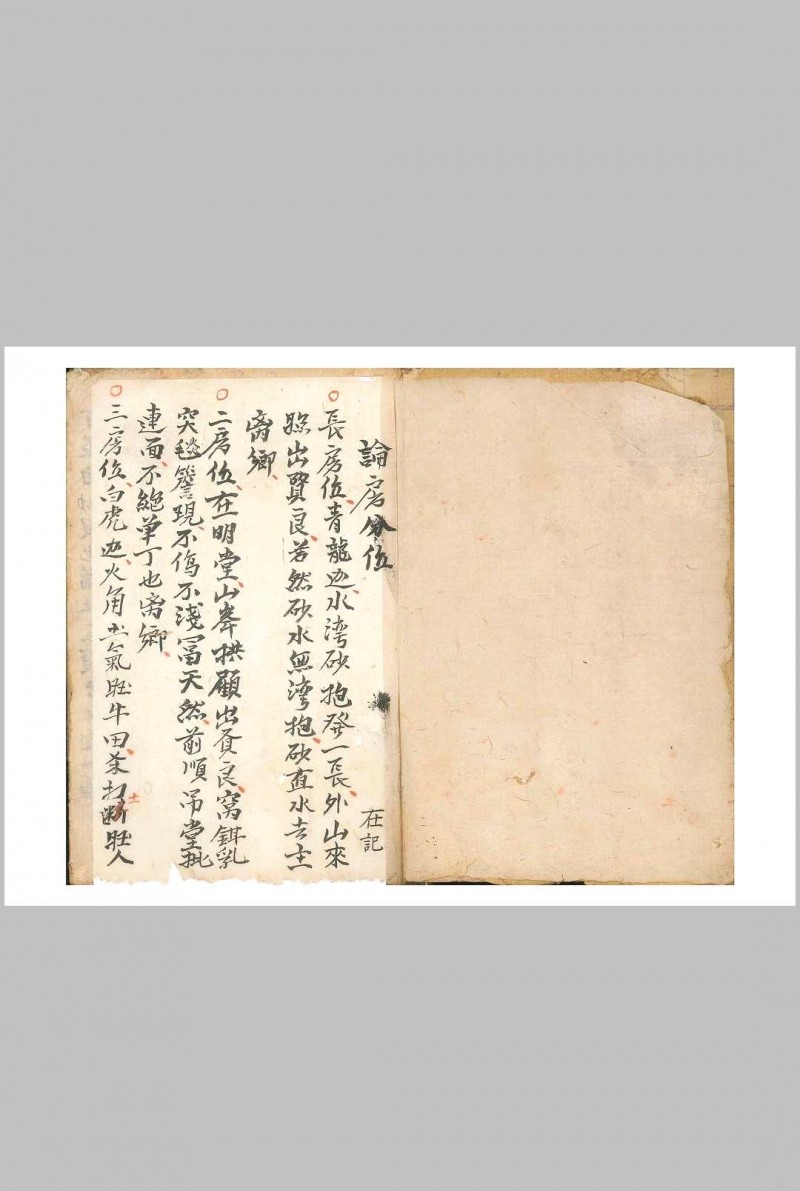 論房分位
在記
長房位青龍边水湾砂抱發一長外山來
照出賢良若然砂水無湾抱砂直水去主
离鄉
二房位在明堂山峯拱顧出賢良窩鉗乳
突毬簷現不傷不淺富天然前順吊堂
連面不絕单丁也离鄉
三房位白虎边火角土氣旺牛田打断旺人
土